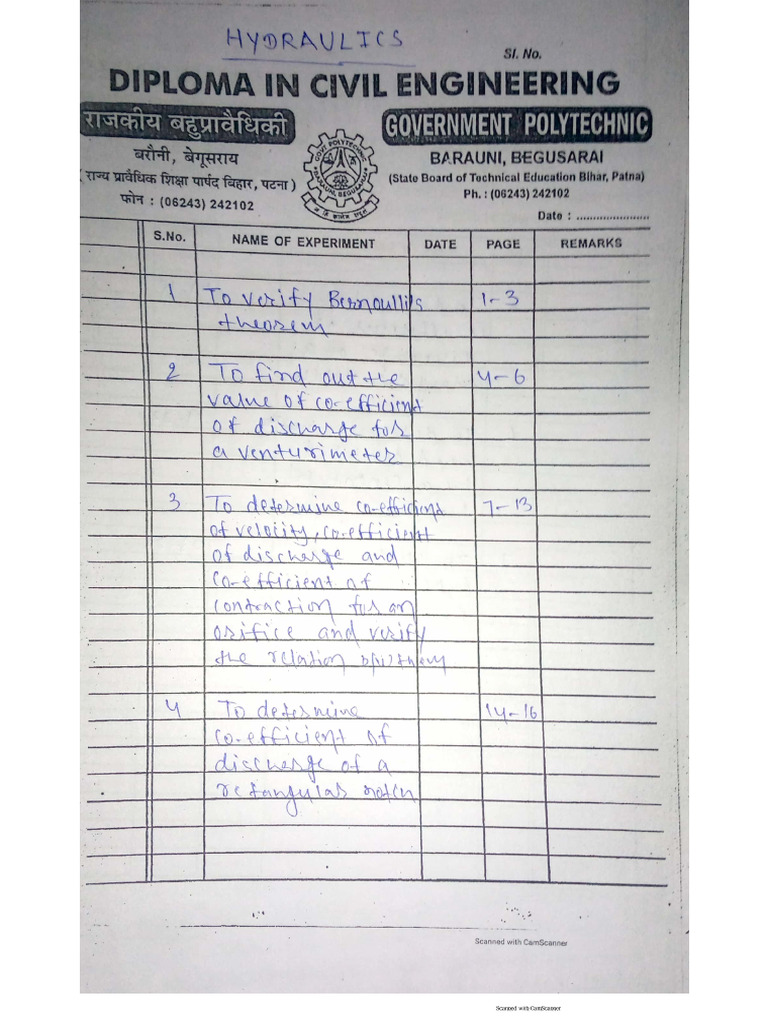 HYDRAULICS
Sl. No.
DIPLOMA IN CIVIL ENGINEERING
राजकीय बहुप्रावैधिकी
GOVERNMENT POLYTECHNIC
बरौनी, बेगूसराय
BARAUNI, BEGUSARAI
( राज्य प्रावैधिक शिक्षा पार्षद बिहार, पटना )
(State Board of Technical Education Bihar, Patna)
फोन : (06243) 242102
Ph. : (06243) 242102
Date : ......................
S.No. NAME OF EXPERIMENT DATE PAGE REMARKS
1 To verify Bernoulli's 1-3
theorem
2 To find out the 4-6
value of co-efficient
of discharge for
a venturimeter
3 To determine co-efficient 7-13
of velocity, co-efficient
of discharge and
co-efficient of
contraction for an
orifice and verify
the relation b/w them
4 To determine 14-16
co-efficient of
discharge of a
rectangular notch
Scanned with CamScanner
Scanned with CamScanner